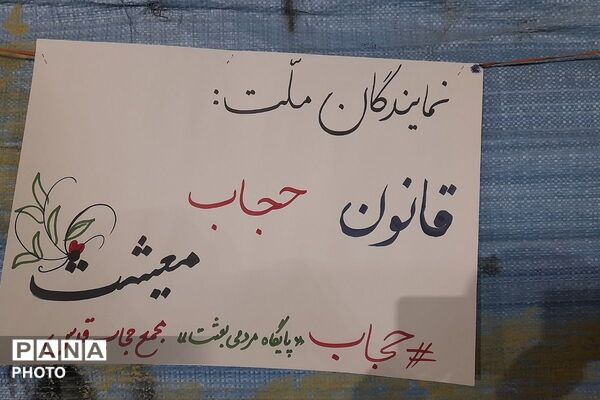 نمایندگان ملّت:
قانون حجاب
معیشت
#حجاب «پایگاه مردمی بعثت» مجمع حجاب قدس
PANA
PHOTO